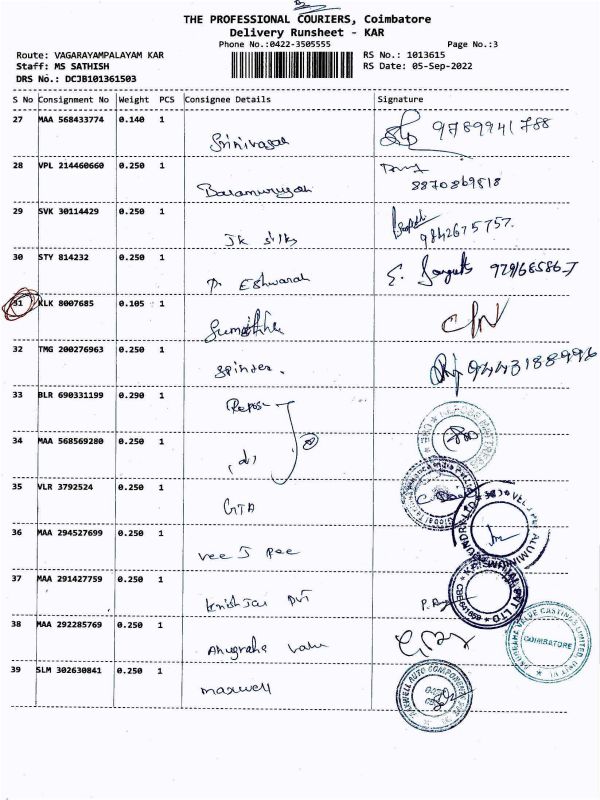 THE PROFESSIONAL COURIERS, Coimbatore
Delivery Runsheet - KAR
Phone No.:0422-3505555 Page No.:3
Route: VAGARAYAMPALAYAM KAR RS No.: 1013615
Staff: MS SATHISH RS Date: 05-Sep-2022
DRS No.: DCJB101361503
S No Consignment No Weight PCS Consignee Details Signature
27 MAA 568433774 0.140 1
Srinivasan 9789941788
28 VPL 214460660 0.250 1
Balamurugan 8870869818
29 SVK 30114429 0.250 1
Jk silks 9842675757.
30 STY 814232 0.250 1
Eshwaran
31 KLK 8007685 0.105 1
32 TMG 200276963 0.250 1
spintex. 9443188996
33 BLR 690331199 0.290 1
Repose
34 MAA 568569280 0.250 1
(d)
35 VLR 3792524 0.250 1
GTA
36 MAA 294527699 0.250 1
Vee J Pee
37 MAA 291427759 0.250 1
PVT
38 MAA 292285769 0.250 1
Anugraha Valve
COIMBATORE
39 SLM 302630841 0.250 1
maxwell